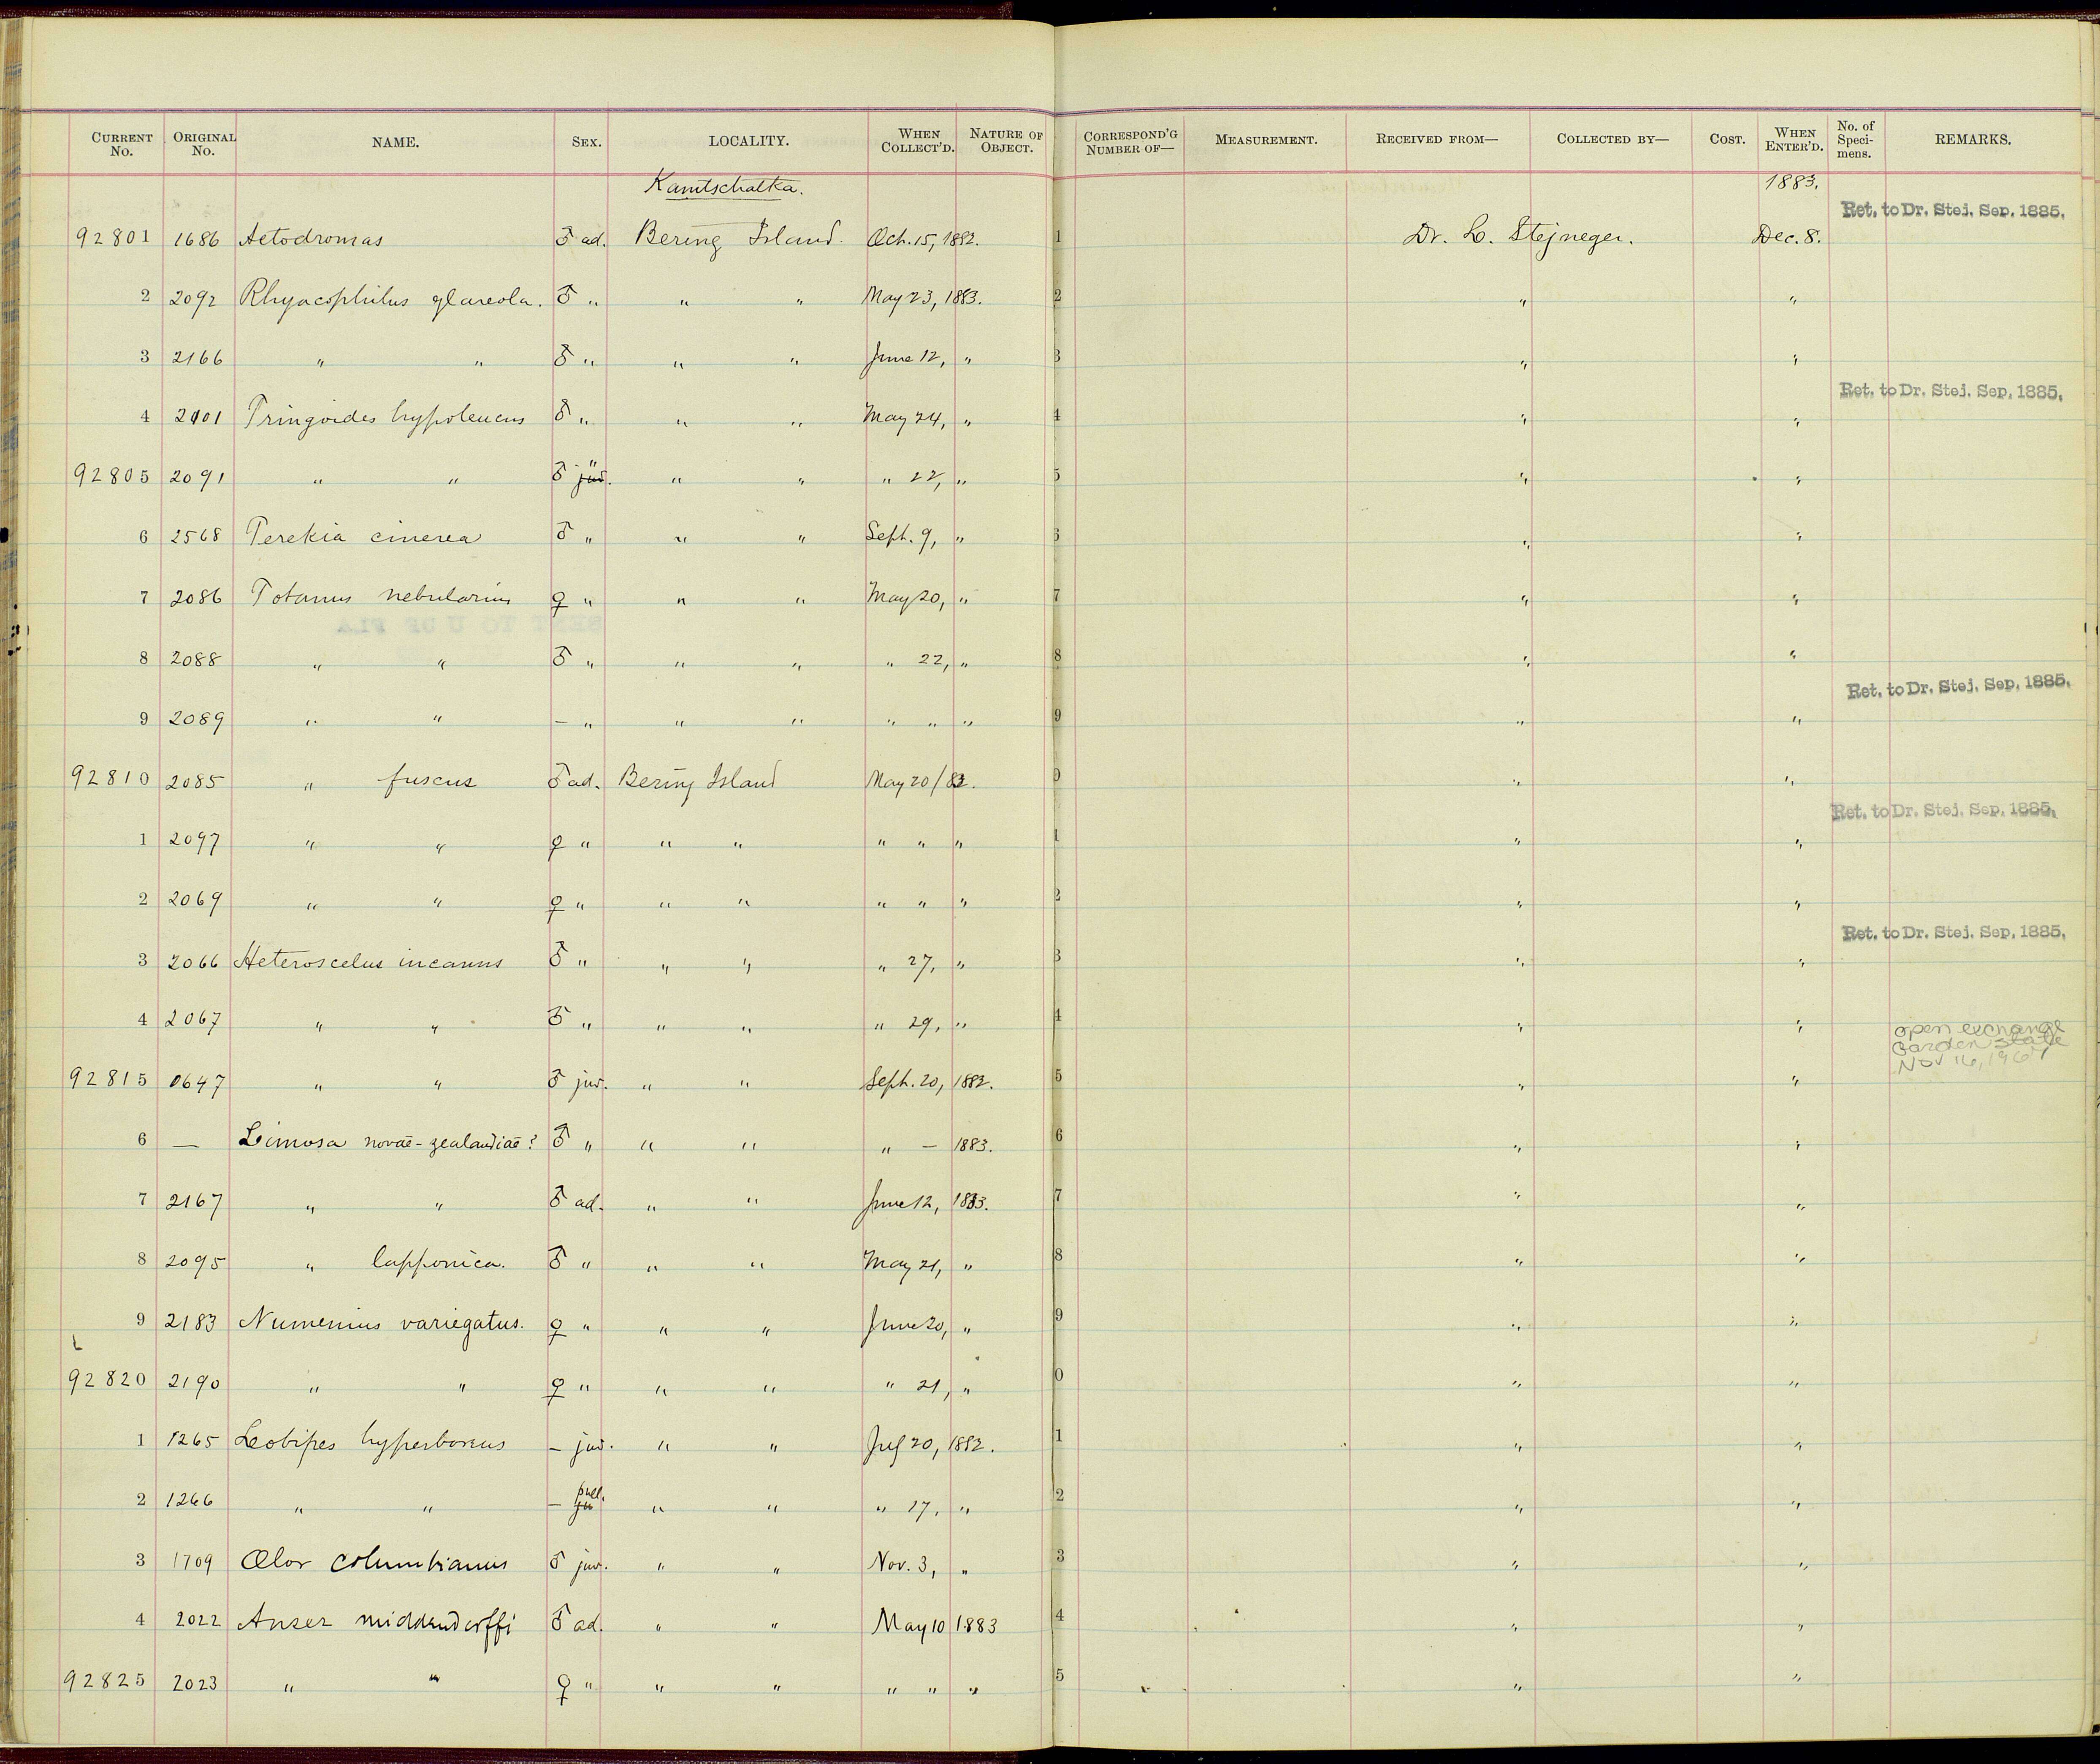 CURRENT No. ORIGINAL No. NAME. SEX. LOCALITY. WHEN COLLECT'D. NATURE OF OBJECT. CORRESPOND'G NUMBER OF— MEASUREMENT. RECEIVED FROM— COLLECTED BY— COST. WHEN ENTER'D. No. of Specimens. REMARKS.
Kamtschatka. 1883.
Ret. to Dr. Stej. Sep. 1885.
92801 1686 Actodromas ♂ ad. Bering Island. Oct. 15, 1882. 1 Dr. L. Stejneger. Dec. 8.
2 2092 Rhyacophilus glareola. ♂ " " " May 23, 1883. 2 " "
3 2166 " " ♂ " " " June 12, " 3 " "
Ret. to Dr. Stej. Sep. 1885.
4 2101 Tringoides hypoleucus ♂ " " " May 24, " 4 " "
92805 2091 " " ♂ " " " " 22, " 5 " "
6 2568 Terekia cinerea ♂ " " " Sept. 9, " 6 " "
7 2086 Totanus nebularius ♀ " " " May 20, " 7 " "
8 2088 " " ♂ " " " " 22, " 8 " "
Ret. to Dr. Stej. Sep. 1885.
9 2089 " " — " " " " " " 9 " "
92810 2085 " fuscus ♂ ad. Bering Island May 20/83. 0 " "
Ret. to Dr. Stej. Sep. 1885.
1 2097 " " ♀ " " " " " " 1 " "
2 2069 " " ♀ " " " " " " 2 " "
Ret. to Dr. Stej. Sep. 1885.
3 2066 Heteroscelus incanus ♂ " " " " 27, " 3 " "
4 2067 " " ♂ " " " " 29, " 4 " "
open exchange
Garden State
Nov 16, 1967
92815 0647 " " ♂ juv. " " Sept. 20, 1882. 5 " "
6 — Limosa novae-zealandiae? ♂ " " " " — 1883. 6 " "
7 2167 " " ♂ ad. " " June 12, 1883. 7 " "
8 2095 " lapponica. ♂ " " " May 21, " 8 " "
9 2183 Numenius variegatus. ♀ " " " June 20, " 9 " "
92820 2190 " " ♀ " " " " 21, " 0 " "
1 1265 Lobipes hyperboreus — juv. " " July 20, 1882. 1 " "
2 1266 " " — pull. " " " 17, " 2 " "
3 1709 Olor columbianus ♂ juv. " " Nov. 3, " 3 " "
4 2022 Anser middendorffi ♂ ad. " " May 10 1883 4 " "
92825 2023 " " ♀ " " " " " " 5 " "